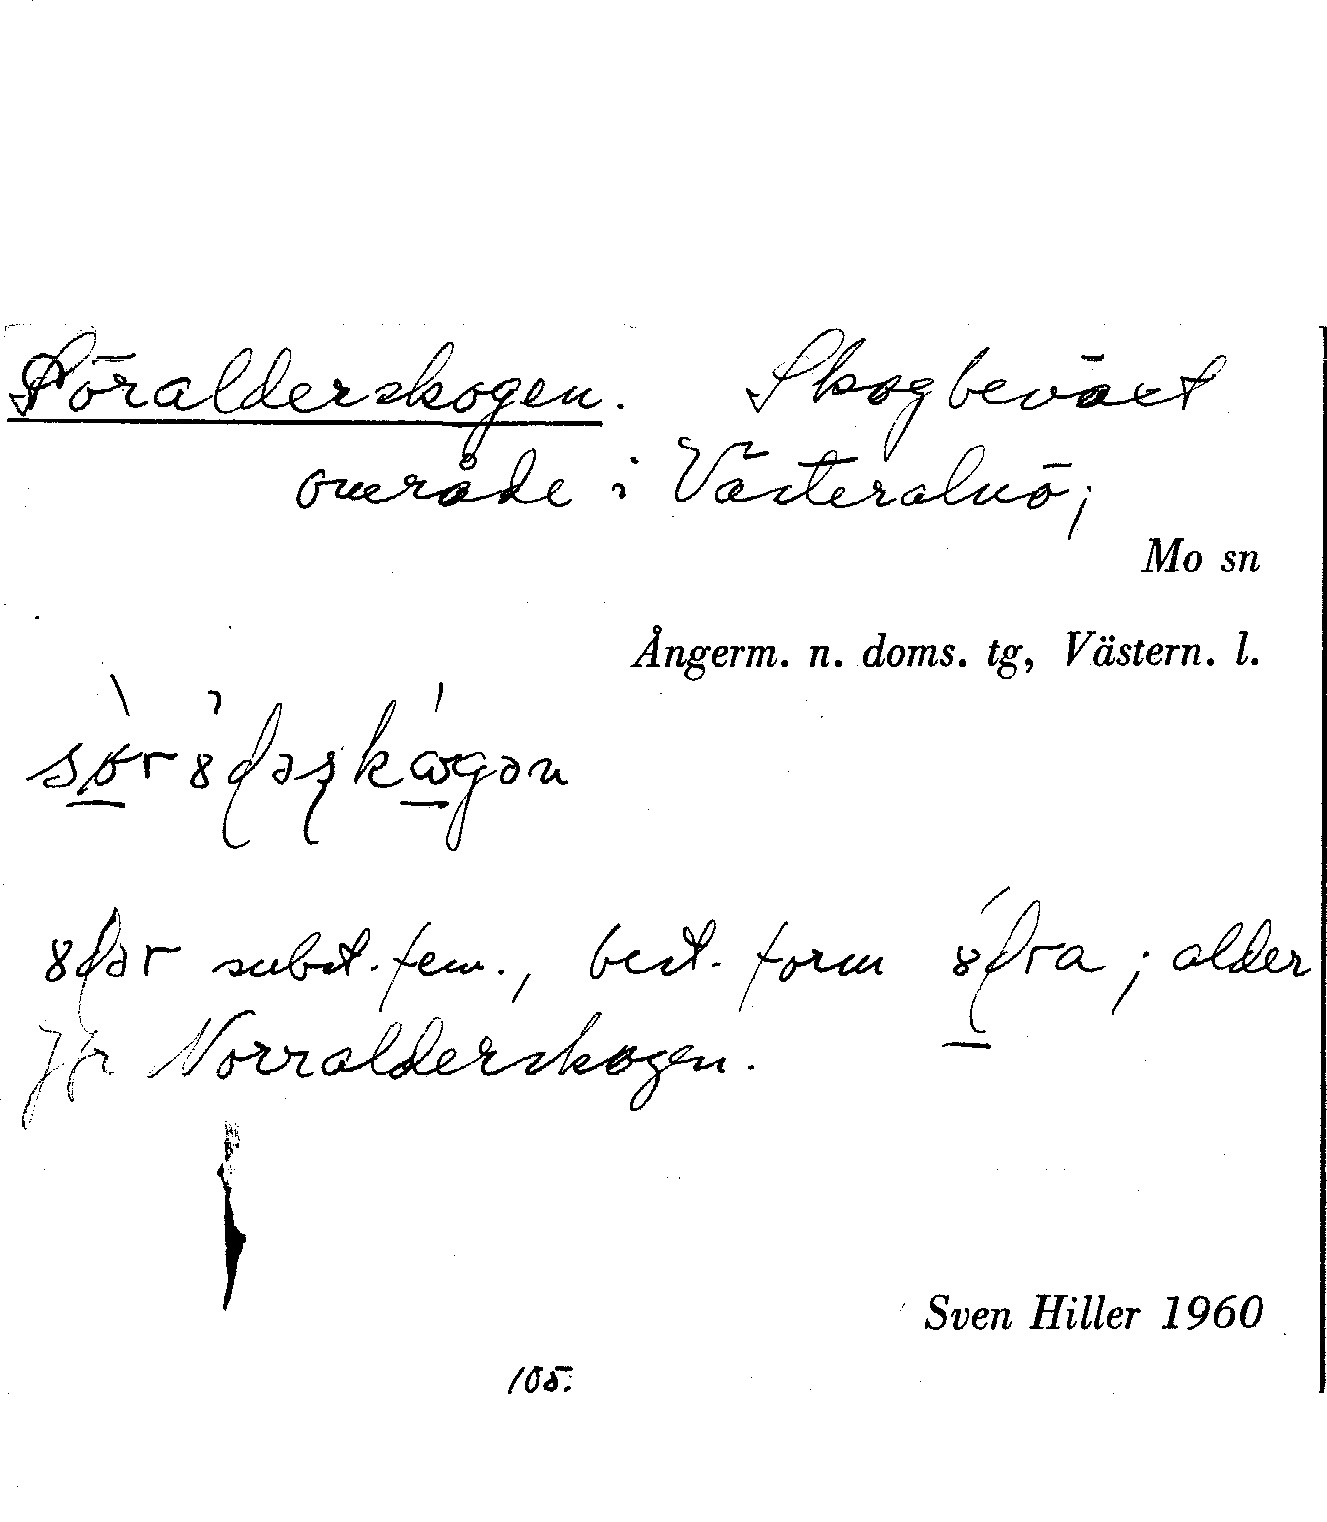 Söralderskogen. Skogbeväxt
område i Västeralnö;
Mo sn
Ångerm. n. doms. tg, Västern. l.
subst. fem., best. form ; alder
Jfr Norralderskogen.
Sven Hiller 1960
105.